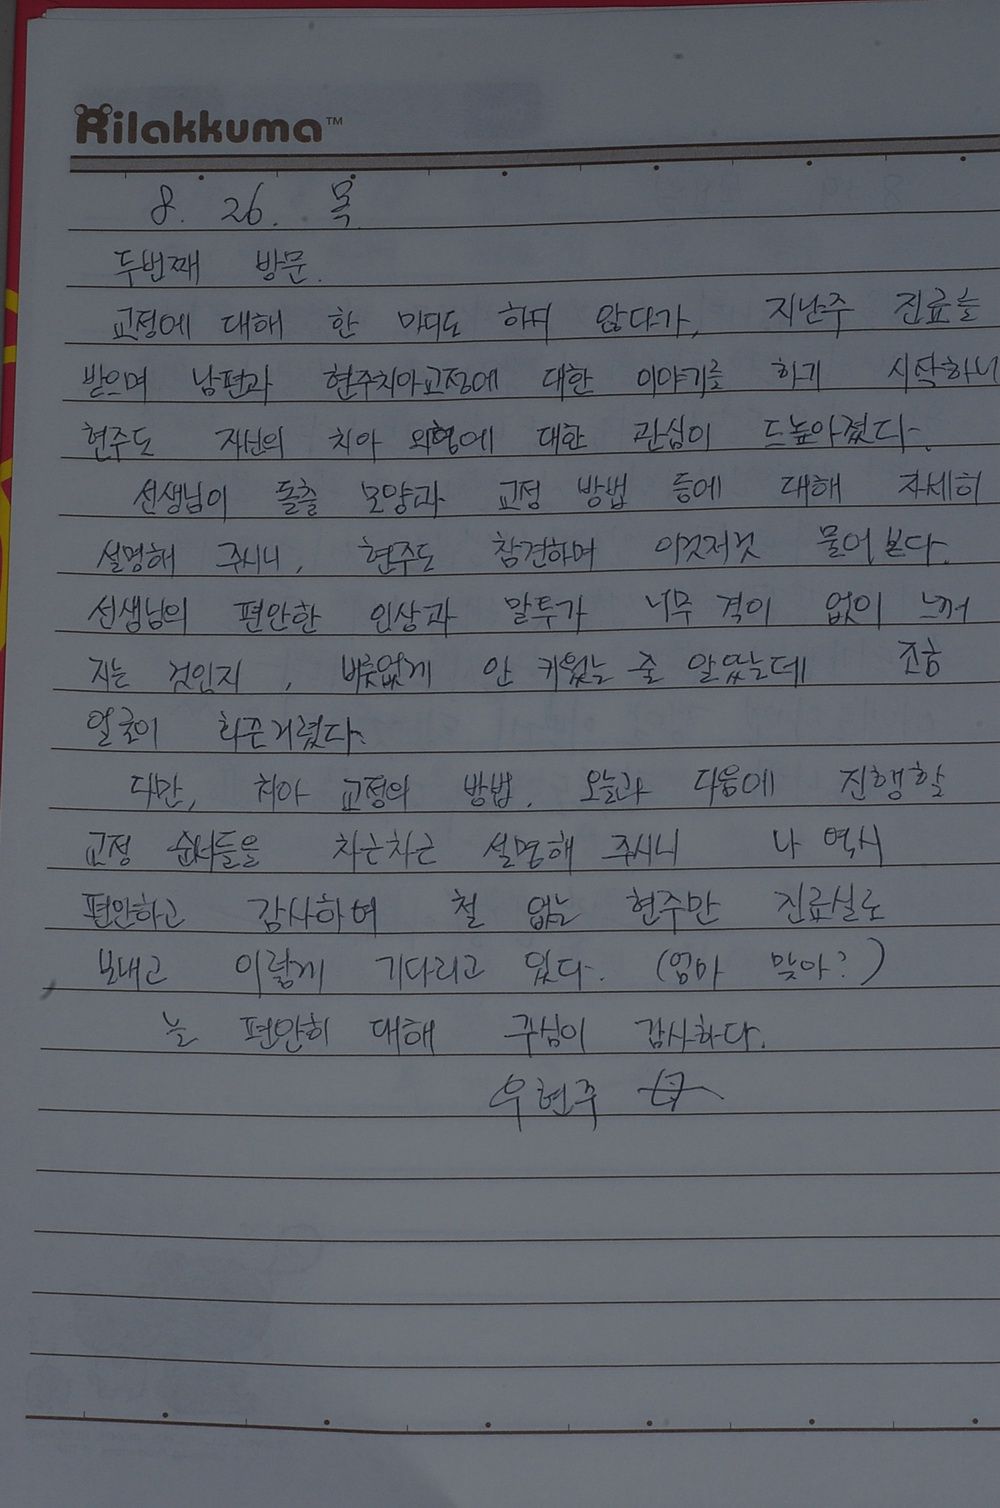 Rilakkuma™
8. 26. 목
두번째 방문.
교정에 대해 한 마디도 하지 않다가, 지난주 진료를
받으며 남편과 현주치아교정에 대한 이야기를 하기 시작하니
현주도 자신의 치아 외형에 대한 관심이 드높아졌다.
선생님이 돌출 모양과 교정 방법 등에 대해 자세히
설명해 주시니, 현주도 참견하며 이것저것 물어본다.
선생님의 편안한 인상과 말투가 너무 격이 없이 느껴
지는 것인지, 버릇없게 안 키웠는 줄 알았는데 조금
얼굴이 화끈거렸다.
다만, 치아 교정의 방법, 오늘과 다음에 진행할
교정 순서들을 차근차근 설명해 주시니 나 역시
편안하고 감사하며 철 없는 현주만 진료실로
보내고 이렇게 기다리고 있다. (엄마 맞아?)
늘 편안히 대해 주심이 감사하다.
우현주 母